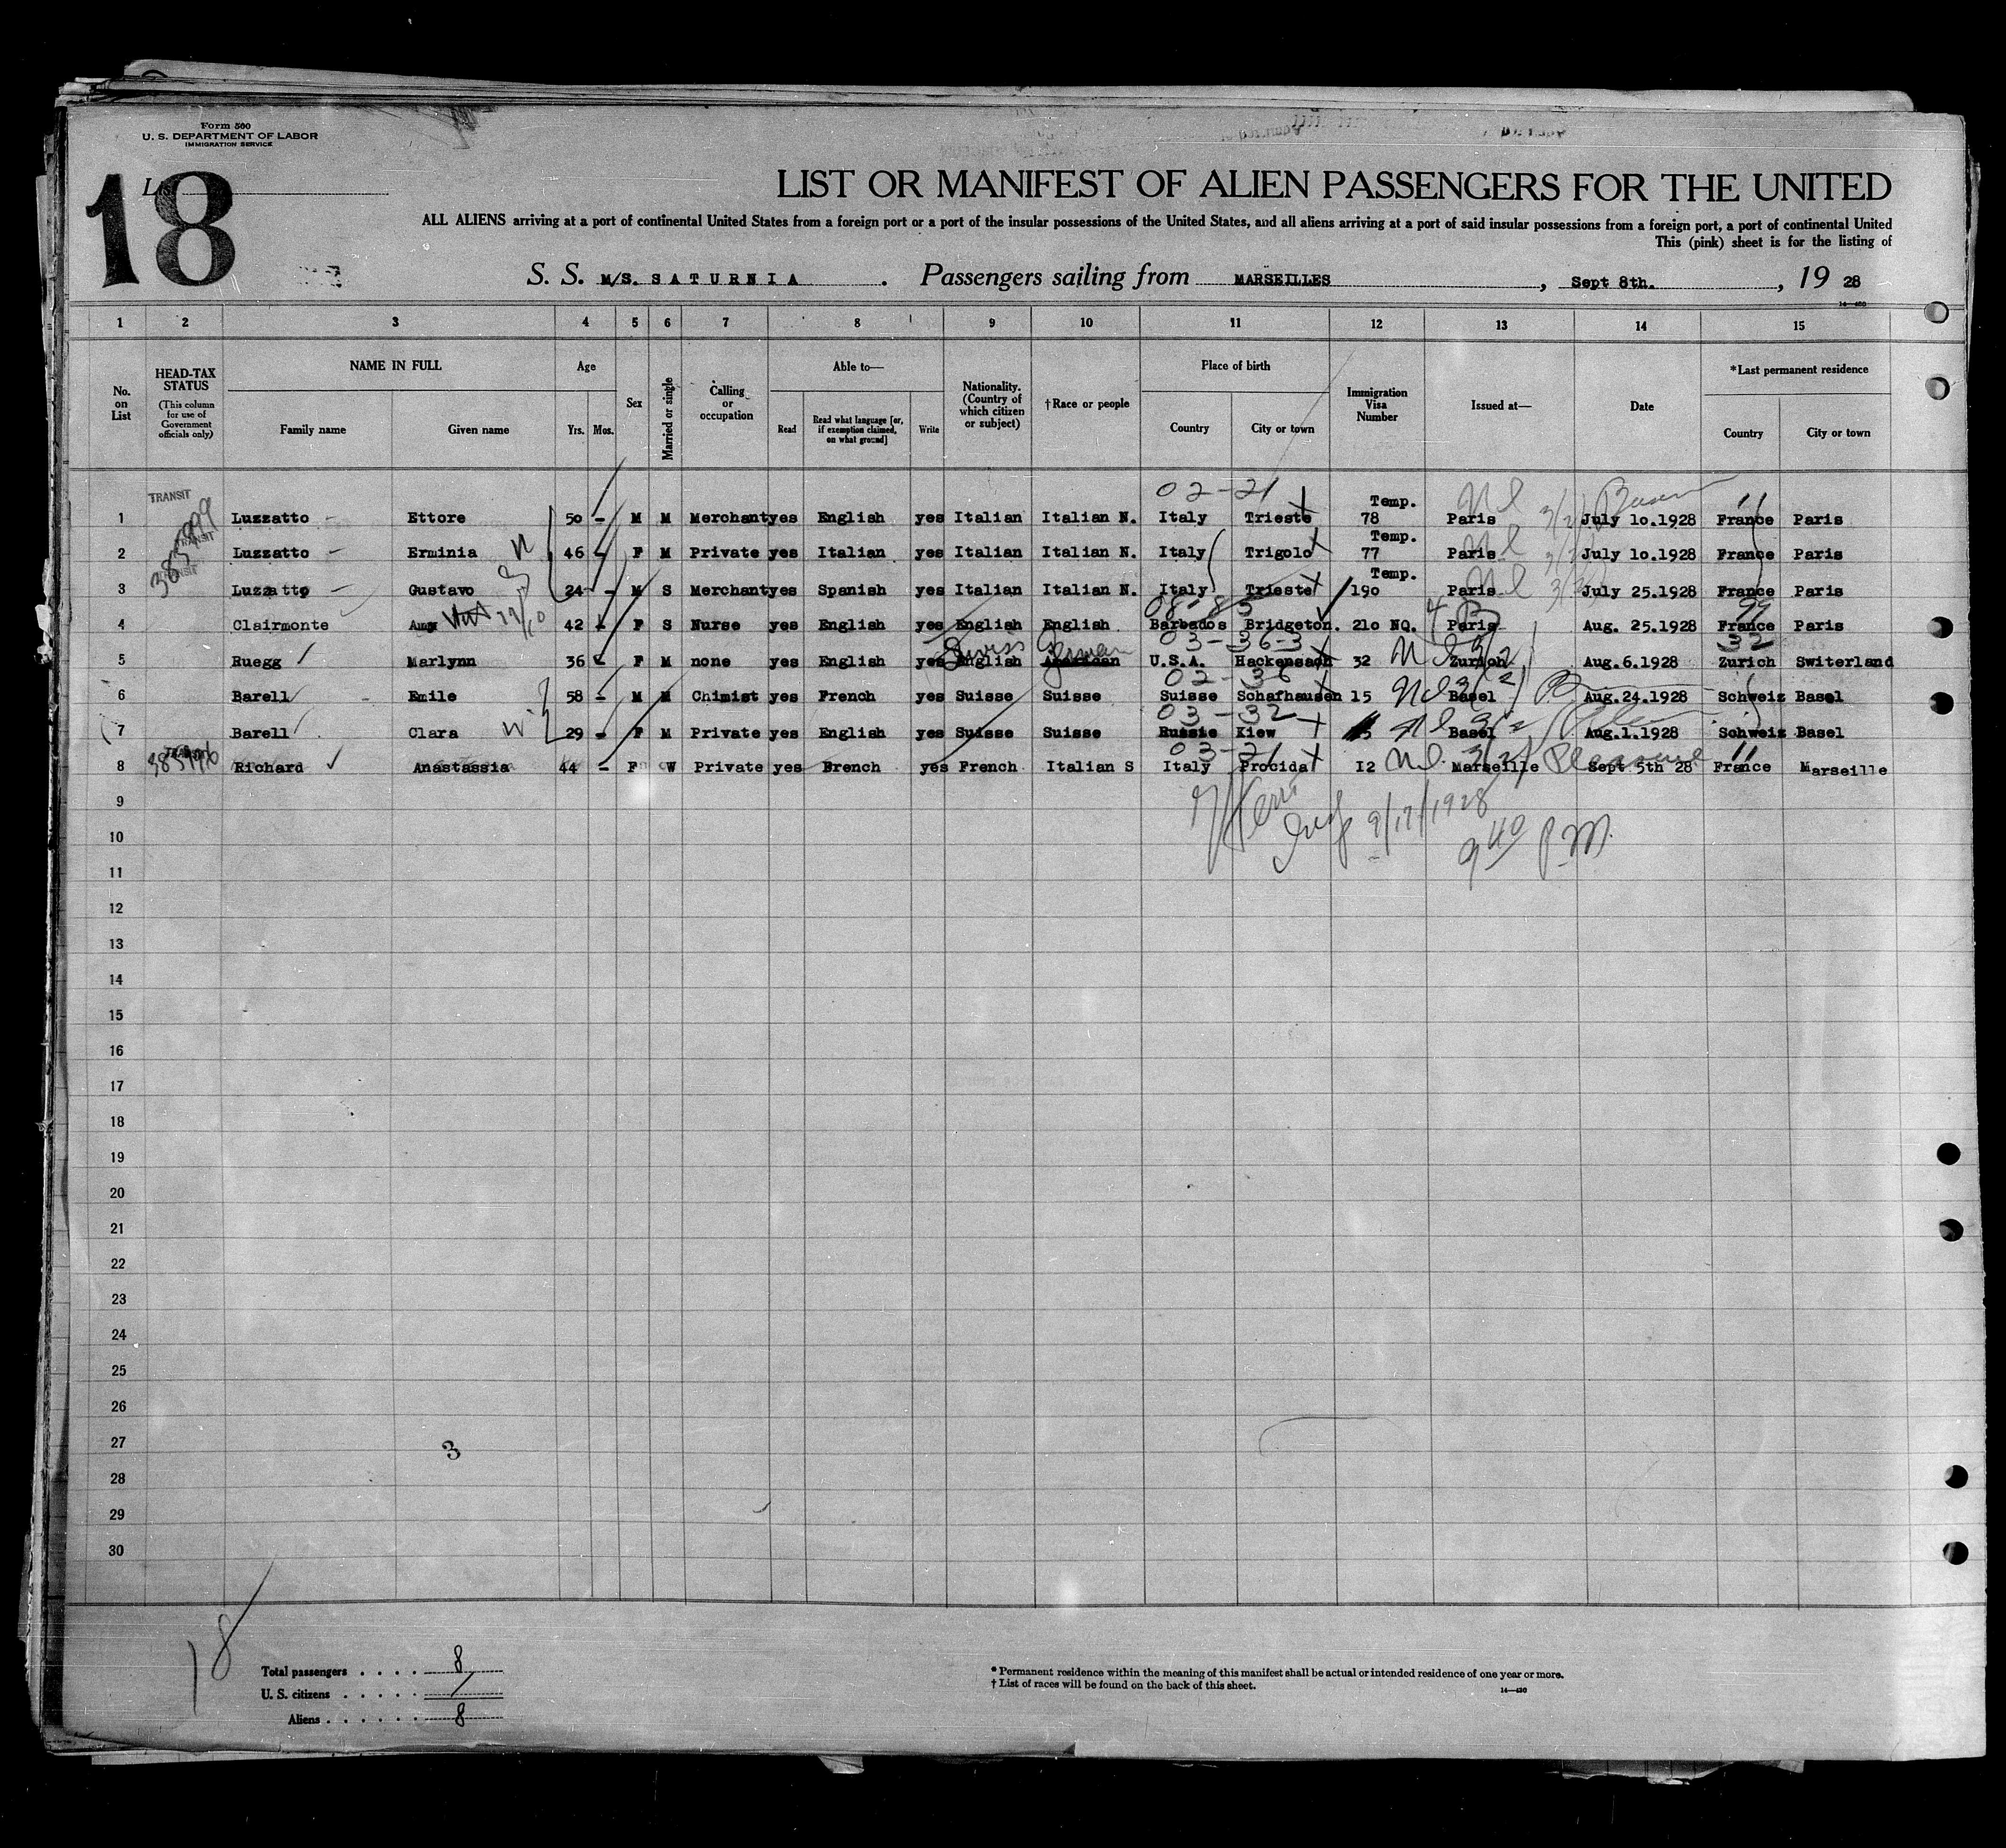 Form 500
U. S. DEPARTMENT OF LABOR
IMMIGRATION SERVICE
18
LIST OR MANIFEST OF ALIEN PASSENGERS FOR THE UNITED
ALL ALIENS arriving at a port of continental United States from a foreign port or a port of the insular possessions of the United States, and all aliens arriving at a port of said insular possessions from a foreign port, a port of continental United
This (pink) sheet is for the listing of
S. S. M/S. SATURNIA. Passengers sailing from MARSEILLES, Sept 8th., 19 28
1 2 3 4 5 6 7 8 9 10 11 12 13 14 15
No. on List HEAD-TAX STATUS (This column for use of Government officials only) NAME IN FULL Family name Given name Age Yrs. Mos. Sex Married or single Calling or occupation Able to— Read Read what language [or, if exemption claimed, on what ground] Write Nationality. (Country of which citizen or subject) †Race or people Place of birth Country City or town Immigration Visa Number Issued at— Date *Last permanent residence Country City or town
TRANSIT 02-21 Temp.
1 Luzzatto Ettore 50 - M M Merchant yes English yes Italian Italian N. Italy Trieste 78 Paris July 10.1928 France Paris
TRANSIT Temp.
2 Luzzatto Erminia 46 - F M Private yes Italian yes Italian Italian N. Italy Trigolo 77 Paris July 10.1928 France Paris
TRANSIT Temp.
3 Luzzatto Gustavo 24 - M S Merchant yes Spanish yes Italian Italian N. Italy Trieste 190 Paris July 25.1928 France Paris
08-85 99
4 Clairmonte Amy 42 F S Nurse yes English yes English English Barbados Bridgeton. 210 NQ. Paris Aug. 25.1928 France Paris
Swiss German 03-36-3 32
5 Ruegg Marlynn 36 F M none yes English yes English American U.S.A. Hackensach 32 Zurich Aug.6.1928 Zurich Switerland
02-36
6 Barell Emile 58 - M M Chimist yes French yes Suisse Suisse Suisse Schafhausen 15 Basel Aug.24.1928 Schweiz Basel
03-32
7 Barell Clara 29 - F M Private yes English yes Suisse Suisse Russie Kiew Basel Aug.1.1928 Schweiz Basel
03-21 Pleasure
8 Richard Anastassia 44 - F W Private yes French yes French Italian S Italy Procida I2 Marseille Sept 5th 28 France Marseille
9
9/17/1928
10
9 40 P.M.
11
12
13
14
15
16
17
18
19
20
21
22
23
24
25
26
27 3
28
29
30
18
Total passengers .... 8
U. S. citizens ..... /
Aliens ...... 8
* Permanent residence within the meaning of this manifest shall be actual or intended residence of one year or more.
† List of races will be found on the back of this sheet.
14—430